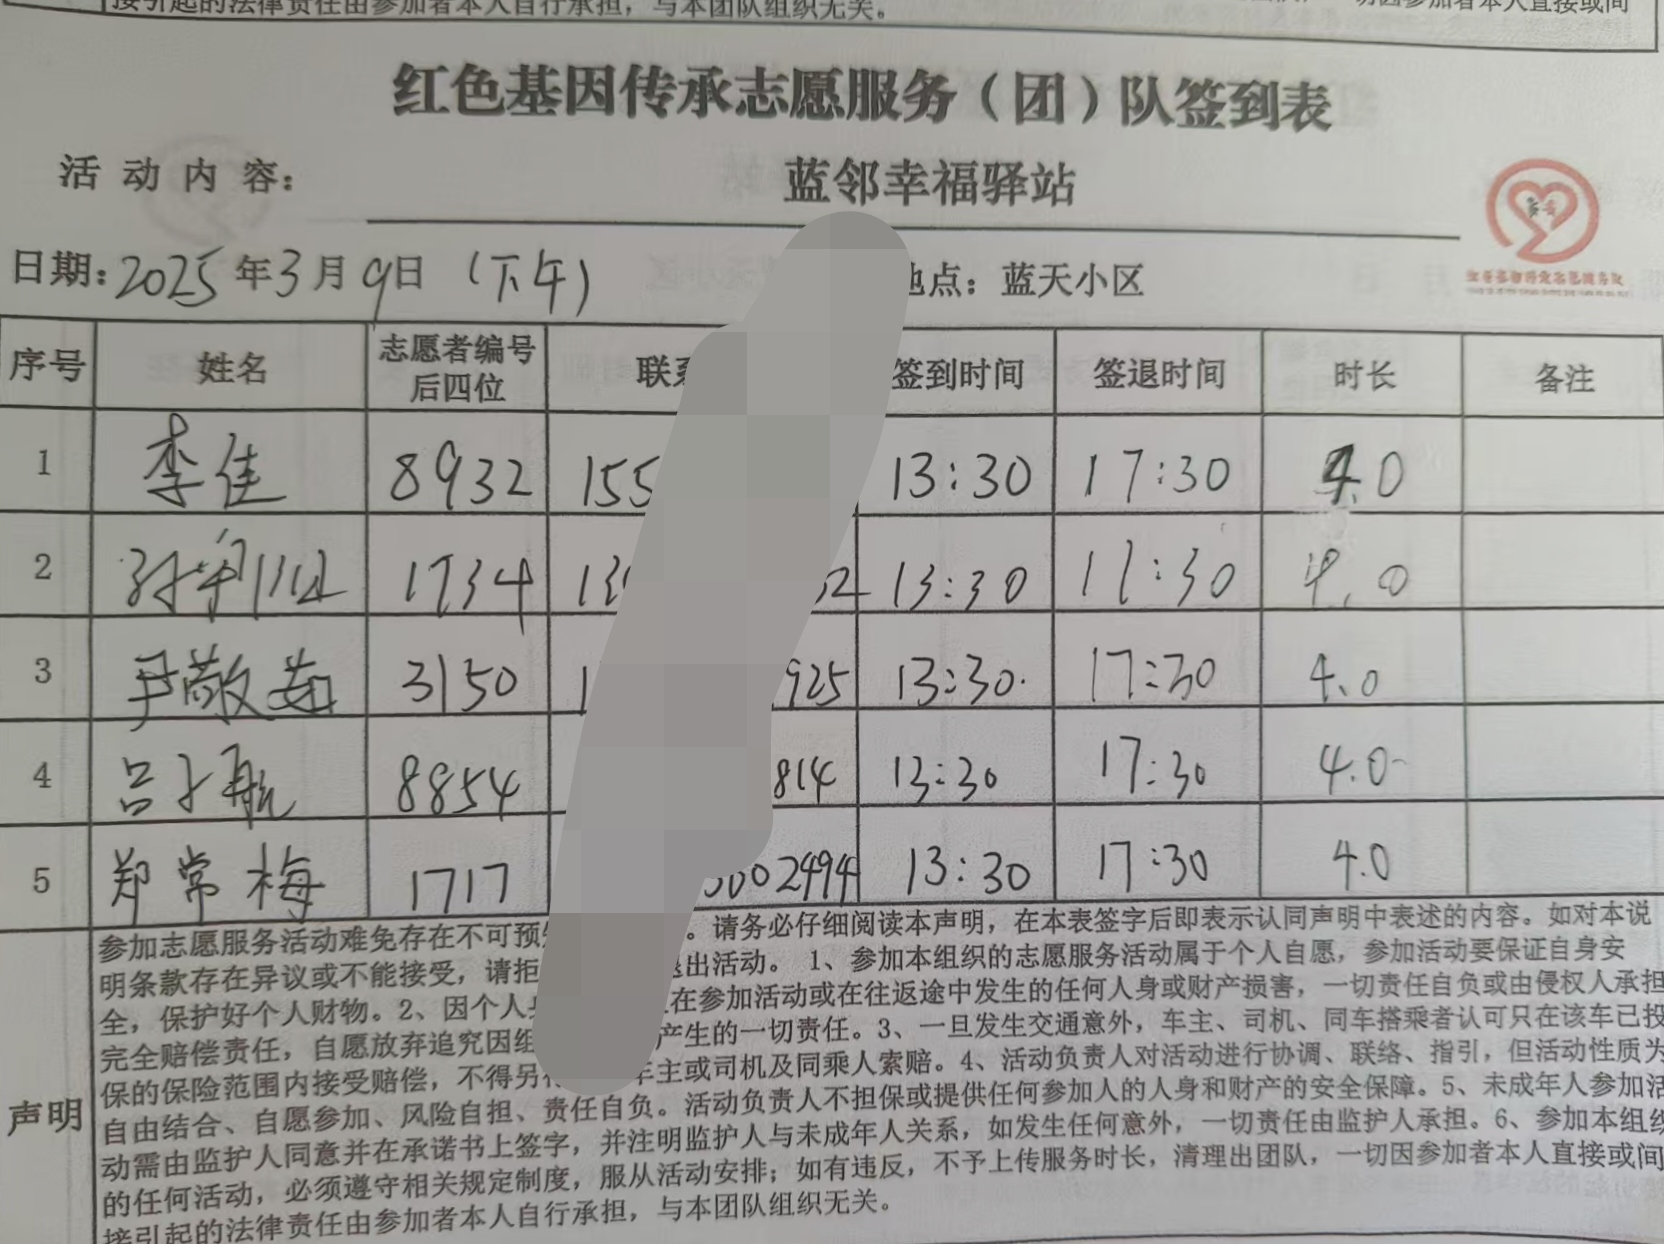 接引起的法律责任由参加者本人自行承担，与本团队组织无关。
红色基因传承志愿服务（团）队签到表
活动内容： 蓝邻幸福驿站
日期：2025年3月9日（下午） 地点：蓝天小区
序号 姓名 志愿者编号后四位 联系 签到时间 签退时间 时长 备注
1 李佳 8932 155 13:30 17:30 4.0
2 1734 13 52 13:30 17:30 4.0
3 尹敬茹 3150 1 925 13:30 17:30 4.0
4 吕子航 8854 814 13:30 17:30 4.0
5 郑常梅 1717 3002494 13:30 17:30 4.0
参加志愿服务活动难免存在不可预 。请务必仔细阅读本声明，在本表签字后即表示认同声明中表述的内容。如对本说
明条款存在异议或不能接受，请拒 退出活动。 1、参加本组织的志愿服务活动属于个人自愿，参加活动要保证自身安
全，保护好个人财物。2、因个人 在参加活动或在往返途中发生的任何人身或财产损害，一切责任自负或由侵权人承担
完全赔偿责任，自愿放弃追究因组 产生的一切责任。3、一旦发生交通意外，车主、司机、同车搭乘者认可只在该车已投
保的保险范围内接受赔偿，不得另 车主或司机及同乘人索赔。4、活动负责人对活动进行协调、联络、指引，但活动性质为
声明 自由结合、自愿参加、风险自担、责任自负。活动负责人不担保或提供任何参加人的人身和财产的安全保障。5、未成年人参加活
动需由监护人同意并在承诺书上签字，并注明监护人与未成年人关系，如发生任何意外，一切责任由监护人承担。6、参加本组织
的任何活动，必须遵守相关规定制度，服从活动安排；如有违反，不予上传服务时长，清理出团队，一切因参加者本人直接或间
接引起的法律责任由参加者本人自行承担，与本团队组织无关。